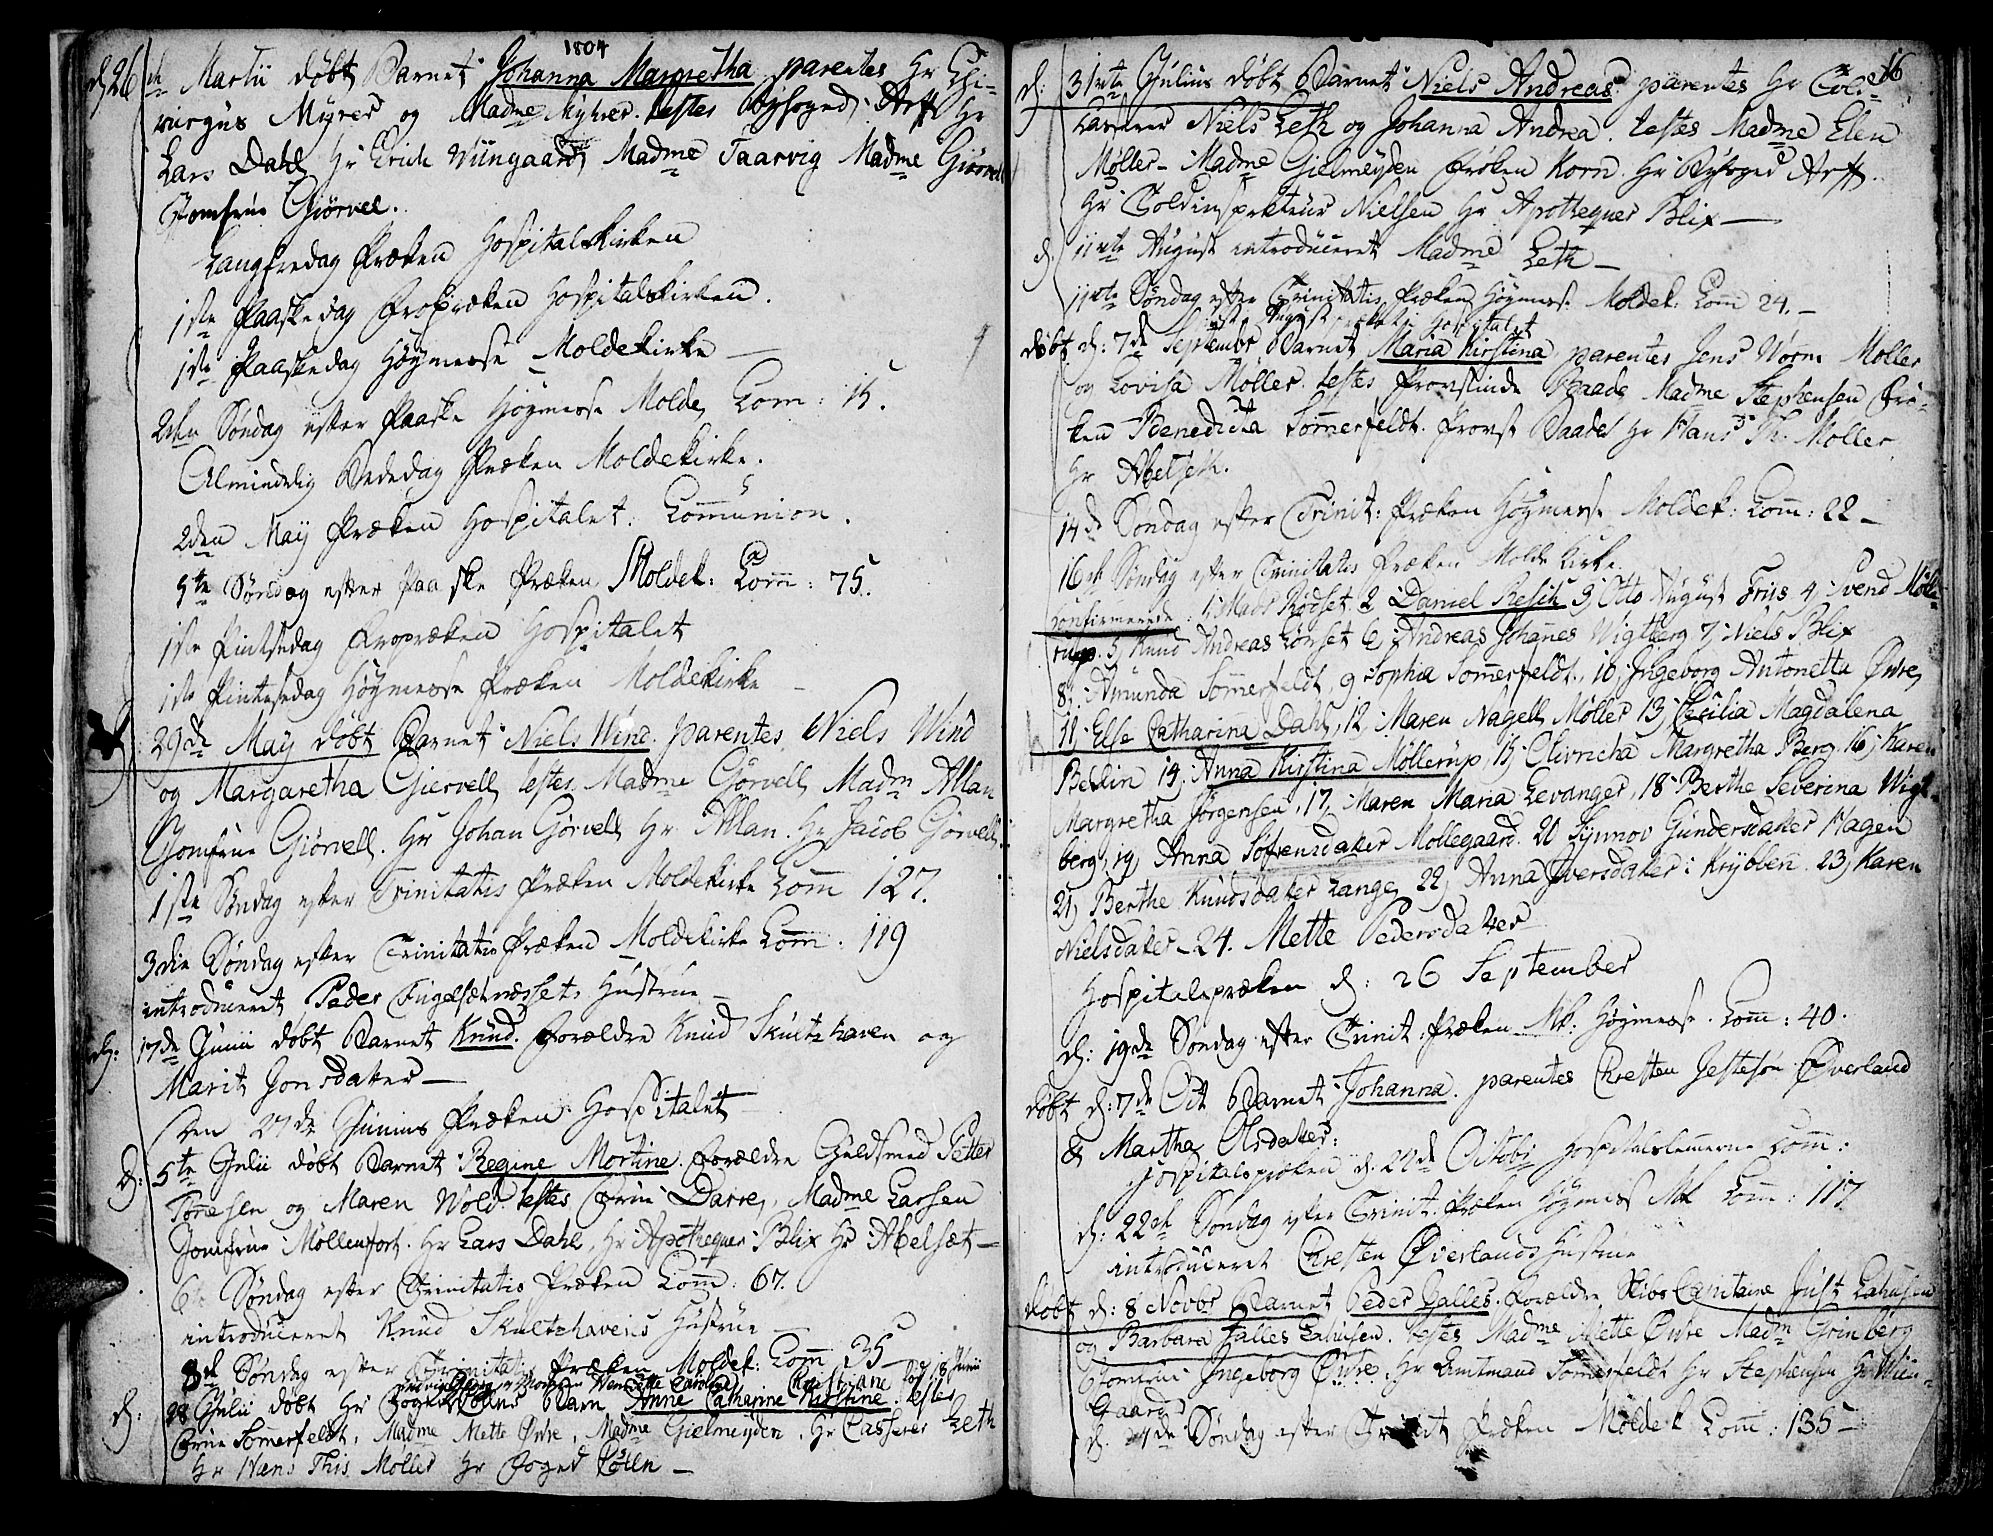 1804
d: 26de Martii døbt Barnet Johanna Margretha parentes Hr Chi-
rurgus Myrer og Madme Myhrer. testes Byfoged Arff Hr
Lars Dahl Hr Erich Wiingaard, Madme Taarvig Madme Giørvel
Jomfrue Giørvel.
Langfredag Præken Hospitalskirken
1ste Paaskedag Fropræken Hospitalskirken.
1ste Paaskedag Høymesse Moldekirke —
2den Søndag efter Paaske Høymesse Molde, Com: 15.
Almindelig Bededag Præken Moldekirke.
2den May Præken Hospitalet. Communion.
5te Søndag efter Paaske Præken Moldek: Com: 75.
1ste Pintsedag Fropræken Hospitalet
1ste Pintsedag Høymesse Præken Moldekirke —
29de May døbt Barnet Niels Wind. parentes Niels Wind
og Margaretha Giervell, testes Madme Gørvell, Madm Allan
Jomfrue Giørvell. Hr Johan Gørvell Hr Allan. Hr Jacob Gørvell.
1ste Søndag efter Trinitatis Præken Moldekirke Com 127.
3die Søndag efter Trinitatis Præken Moldekirke Com: 119
introduceret Peder Fugelsetnesset Hustrue —
d: 17de Junii døbt Barnet Knud. Forældre Knud Skultzhaven og
Marit Jonsdater —
Den 27de Junius Præken Hospitalet
d: 5te Julii døbt Barnet Regine Mortine. Forældre Guldsmed Petter
Tøresen og Maren Wold. testes Frue Darre, Madme Larsen
Jomfrue Møllenfort. Hr Lars Dahl, Hr Apotheqver Blix Hr Abelsæt —
6te Søndag efter Trinitatis Præken Com: 67.
introduceret Knud Skultzhavens Hustrue —
8de Søndag efter Trinitatis Præken Moldek: Com: 35 —
d: 28 Julii døbt Hr Foged Barn Anne Catharine Kirstine. testes
Frue Sommerfeldt, Madme Mette Øvre, Madme Gielmeyden. Hr Casserer Leth
Hr Hans This Møller Hr Foged —
16
d: 31te Julius døbt Barnet Niels Andreas. parentes Hr Told-
casserer Niels Leth og Johanna Andrea. testes Madme Elen
Møller — Madme Gielmeyden Frøken Korn. Hr Byfoged Arff.
Hr Toldinspekteur Nielsen Hr Apotheqver Blix —
d. 11te August introduceret Madme Leth —
11te Søndag efter Trinitatis Præken Høymesse Moldek: Com 24. —
August Hospitalet
døbt d: 7de Septembr Barnet Maria Kirstina, parentes Jens Worm Møller
og Lovisa Møller. testes Provstinde Baade Madme Stephensen Frø-
ken Benedicta Sommerfeldt. Provst Baade Hr Hans Th: Møller
Hr Abelseth.
14de Søndag efter Trinit: Præken Høymesse Moldek: Com: 22 —
16de Søndag efter Trinitatis Præken Molde Kirke
Confirmerede. 1. Mads Rødset. 2 Daniel Resch 3, Otto August Friis 4, Svend Mølle-
rup. 5, Knud Andreas Lønset 6, Andreas Johannes Wigtberg 7, Niels Blix
8, Amunda Sommerfeldt, 9 Sophia Sommerfeldt. 10, Ingeborg Antonetta Øvre,
11, Else Catharina Dahl, 12, Maren Nagell Møller 13, Cecilia Magdalena
Beklin 14, Anna Kirstina Møllerup 15, Olivricha Margretha Berg. 16, Karen
Margretha Jørgensen, 17, Maren Maria Levanger, 18 Berthe Severina Wigt-
berg, 19, Anna Sofrensdater Møllegaard. 20 Synnov Gundersdater Hagen
21, Berthe Knudsdater Lange, 22, Anna Iversdater i Krybben. 23, Karen
Nielsdater — 24. Mette Pedersdater —
Hospitalspræken d: 26 September
d: 19de Søndag efter Trinit: Præken Mk: Høymesse. Com: 40.
døbt d: 7de Oct Barnet Johanna. parentes Chresten Jettesøn Øverland
& Martha Olsdater.
Hospitalspræken d. 24de Octobr Hospitalslemmerne Com:
d: 22de Søndag efter Trinit. Præken Høymess Mk Com: 117
introduceret Chresten Øverlands Hustrue
døbt d: 8 Novbr Barnet Peder Galles. Forældre Skibs Capitaine Just Lahusen
og Barbara Galles Lahusen. testes Madme Mette Øvre Madm Grinberg
Jomfrue Ingeborg Øvre, Hr Amtmand Sommerfeldt Hr Stephensen Hr Wiin-
gaard
d. de Søndag efter Trinit Præken Moldek Com: 135 —